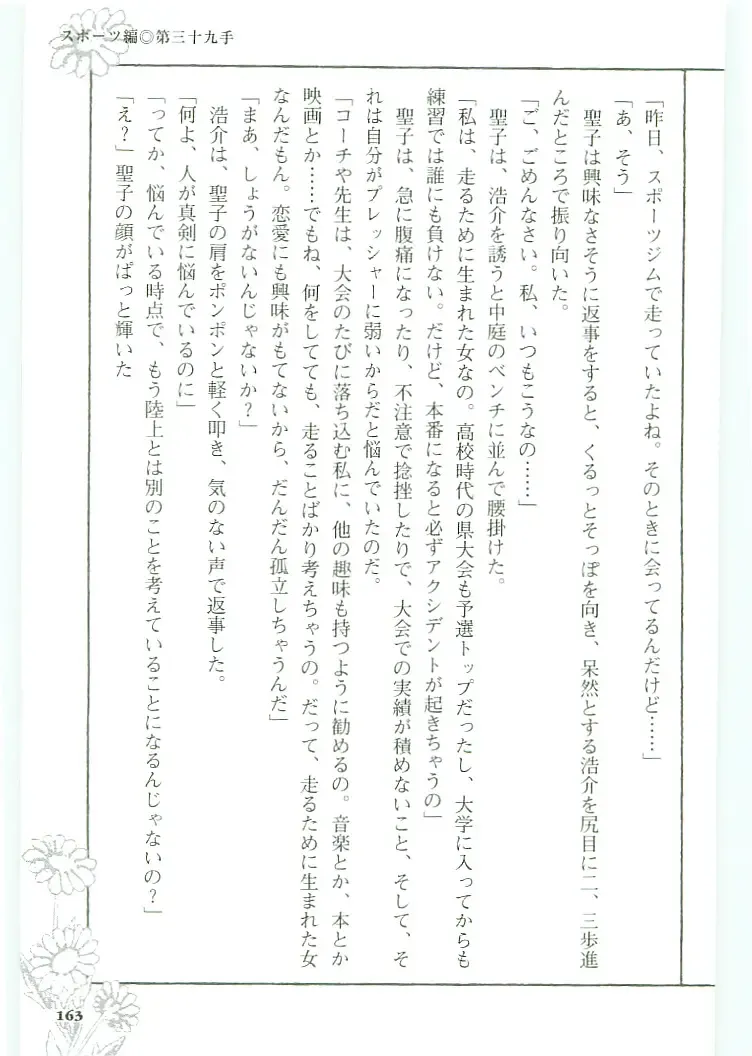 スポーツ編◎第三十九手
「昨日、スポーツジムで走っていたよね。そのときに会ってるんだけど……」
「あ、そう」
聖子は興味なさそうに返事をすると、くるっとそっぽを向き、呆然とする浩介を尻目に二、三歩進
んだところで振り向いた。
「ご、ごめんなさい。私、いつもこうなの……」
聖子は、浩介を誘うと中庭のベンチに並んで腰掛けた。
「私は、走るために生まれた女なの。高校時代の県大会も予選トップだったし、大学に入ってからも
練習では誰にも負けない。だけど、本番になると必ずアクシデントが起きちゃうの」
聖子は、急に腹痛になったり、不注意で捻挫したりで、大会での実績が積めないこと、そして、そ
れは自分がプレッシャーに弱いからだと悩んでいたのだ。
「コーチや先生は、大会のたびに落ち込む私に、他の趣味も持つように勧めるの。音楽とか、本とか
映画とか……でもね、何をしてても、走ることばかり考えちゃうの。だって、走るために生まれた女
なんだもん。恋愛にも興味がもてないから、だんだん孤立しちゃうんだ」
「まあ、しょうがないんじゃないか？」
浩介は、聖子の肩をポンポンと軽く叩き、気のない声で返事した。
「何よ、人が真剣に悩んでいるのに」
「ってか、悩んでいる時点で、もう陸上とは別のことを考えていることになるんじゃないの？」
「え？」聖子の顔がぱっと輝いた
163